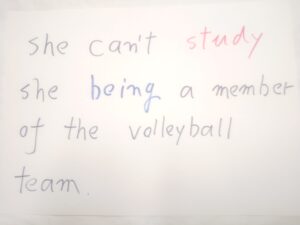 she can't study
she being a member
of the volleyball
team.